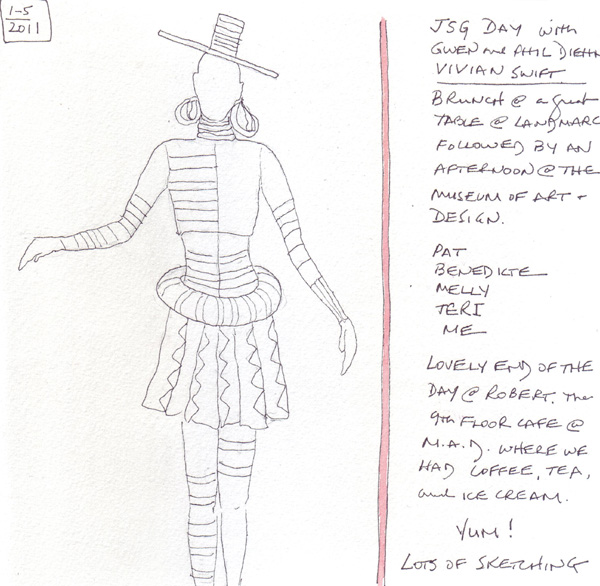 1-5
2011
JSG DAY with
GWEN and PHIL DIEHN
VIVIAN SWIFT
BRUNCH @ a great
TABLE @ LANDMARC
FOLLOWED BY AN
AFTERNOON @ THE
MUSEUM OF ART +
DESIGN.
PAT
BENEDICTE
MELLY
TERI
ME
LOVELY END OF THE
DAY @ ROBERT. The
9th FLOOR CAFE @
M.A.D. WHERE WE
HAD COFFEE, TEA,
and ICE CREAM.
YUM!
LOTS OF SKETCHING